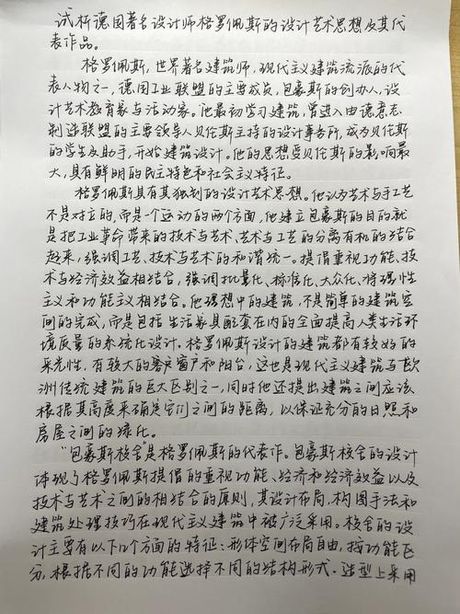 试析德国著名设计师格罗佩斯的设计艺术思想及其代
表作品。
格罗佩斯,世界著名建筑师,现代主义建筑流派的代
表人物之一,德国工业联盟的主要成员,包豪斯的创办人,设
计艺术教育家与活动家。他最初学习建筑,曾进入由德意志
制造联盟的主要领导人贝伦斯主持的设计事务所,成为贝伦斯
的学生及助手,开始建筑设计。他的思想受贝伦斯的影响最
大,具有鲜明的民主特色和社会主义特征。
格罗佩斯具有其独到的设计艺术思想。他认为艺术与手工艺
不是对立的,而是一个运动的两个方面,他建立包豪斯的目的就
是把工业革命带来的技术与艺术、艺术与工艺的分离有机的结合
起来,强调工艺、技术与艺术的和谐统一。提倡重视功能、技
术与经济效益相结合,强调批量化、标准化、大众化、将理性
主义和功能主义相结合。他理想中的建筑,不是简单的建筑空
间的完成,而是包括生活家具配套在内的全面提高人类生活环
境质量的系统化设计。格罗佩斯设计的建筑都有较好的
采光性,有较大的窗户和阳台,这也是现代主义建筑与欧
洲传统建筑的巨大区别之一,同时他还提出建筑之间应该
根据其高度来确定它们之间的距离,以保证充分的日照和
房屋之间的绿化。
“包豪斯校舍是格罗佩斯的代表作。包豪斯校舍的设计
体现了格罗佩斯提倡的重视功能、经济和经济效益以及
技术与艺术之间的相结合的原则,其设计布局,构图手法和
建筑处理技巧在现代主义建筑中被广泛采用。校舍的设
计主要有以下几个方面的特征:形体空间布局自由,按功能区
分,根据不同的功能选择不同的结构形式.造型上采用